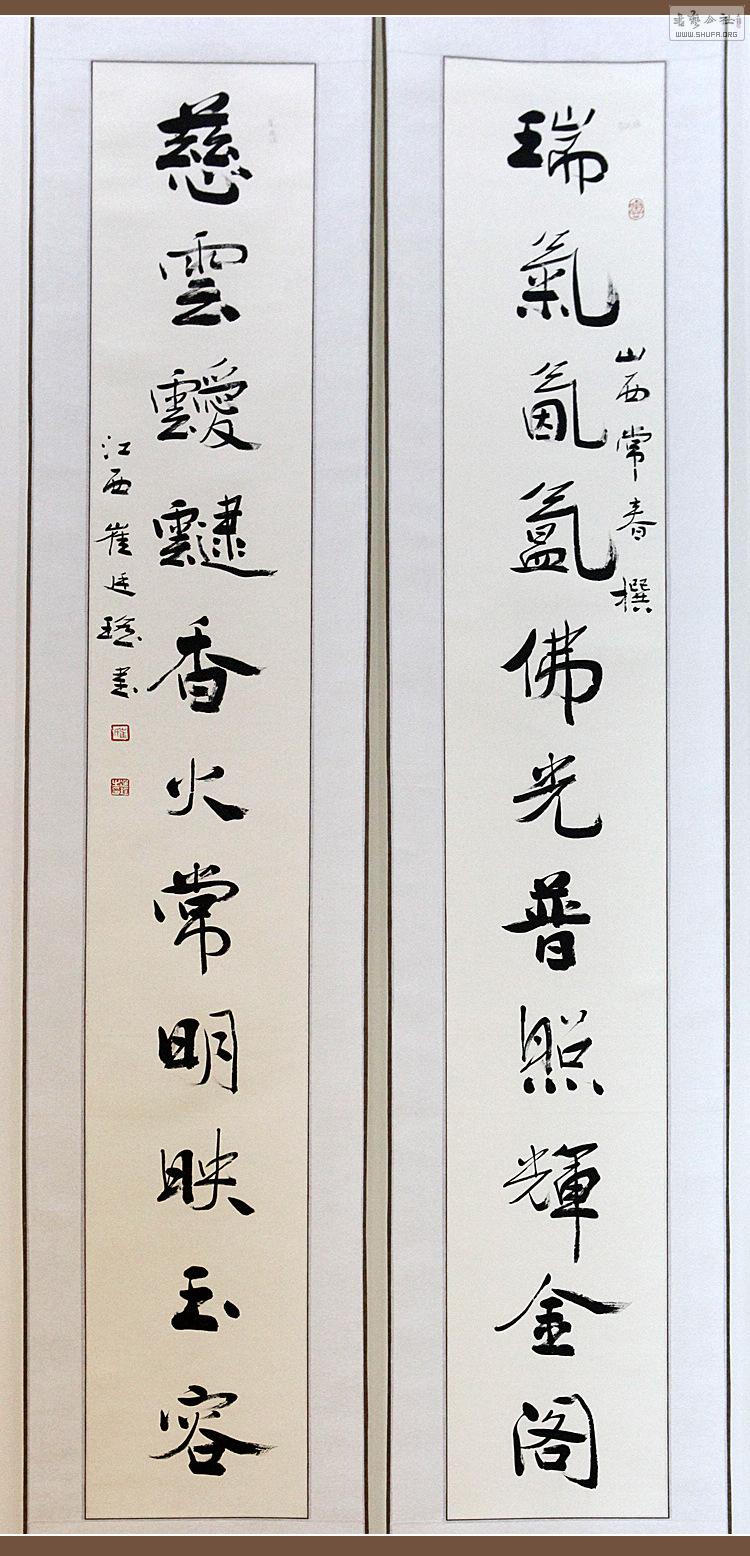 瑞氣氤氳佛光普照輝金阁
山西常春撰
慈雲靉靆香火常明映玉容
江西崔廷瑤书
WWW.SHUFA.ORG